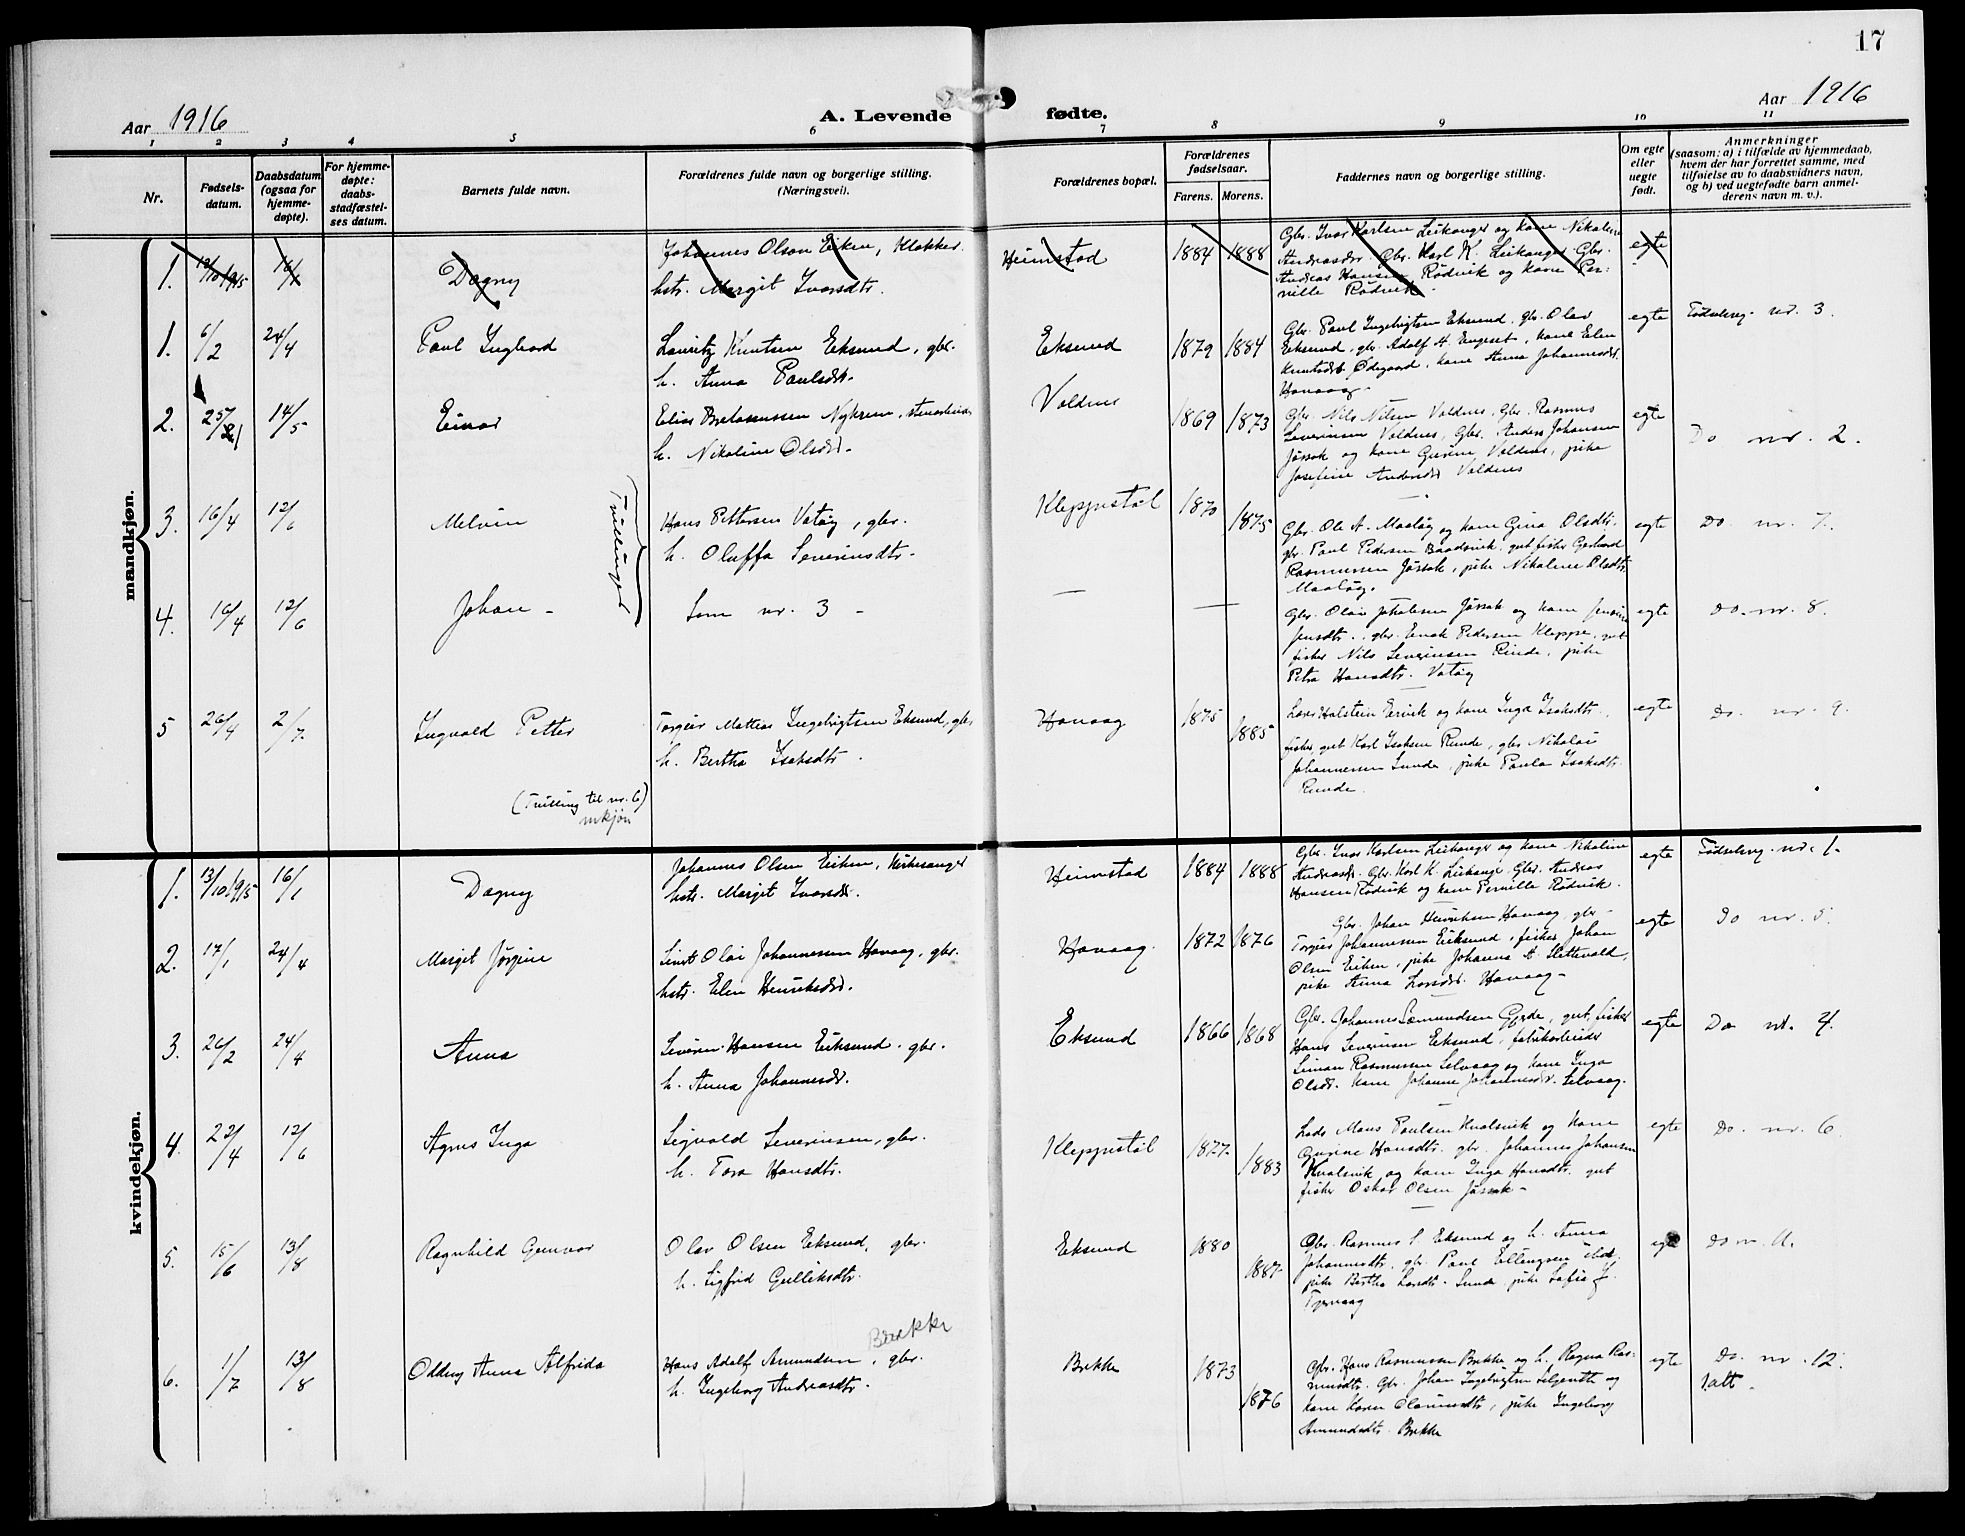 17
Aar 1916
A. Levende fødte.
Aar 1916
1 2 3 4 5 6 7 8 9 10 11
Nr.
Fødsels-
datum.
Daabsdatum
(ogsaa for
hjemme-
døpte).
For hjemme-
døpte:
daabs-
stadfæstel-
ses datum.
Barnets fulde navn.
Forældrenes fulde navn og borgerlige stilling.
(Næringsvei).
Forældrenes bopæl.
Forældrenes
fødselsaar.
Farens. Morens.
Faddernes navn og borgerlige stilling.
Om egte
eller
uegte
født.
Anmerkninger
(saasom: a) i tilfælde av hjemmedaab,
hvem der har forrettet samme, med
tilføielse av to daabsvidners navn,
og b) ved uegtefødte barn anmel-
derens navn m. v.).
mandkjøn.
1. 13/10 1915 16/1 Dagny
Johannes Olsen Eiken, Klokker.
hstr. Margit Ivarsdtr.
Heimstad 1884 1888
Gbr. Ivar Karlsen Leikanger og kone Nikoline
Andreasdtr. Gbr. Karl K. Leikanger Gbr.
Andreas Hansen Rødvik og kone Per-
nille Rødvik.
egte
1. 6/2 24/4 Paul Ingvard
Lauritz Knutsen Eksund, gbr.
h. Anna Paulsdtr.
Eksund 1879 1884
Gbr. Paul Ingebrigtsen Eksund, gbr. Olav
Eksund, gbr. Adolf A. Engeset, kone Elen
Knutsdtr Ødegaard, kone Anna Johannesdtr.
Havaag.
egte Fødselreg. nr. 3.
2. 25/2 14/5 Einar
Elias Nykrem,
h. Nikoline Olsdtr.
Voldnes 1869 1873
Gbr. Nils Nilsen Voldnes, Gbr. Rasmus
Severinsen Voldnes, Gbr. Anders Johansen
Jøssok og kone Gurine Voldnes, pike
Josefine Andersdtr Voldnes
egte Do nr. 2.
3. 16/4 12/6 Melvin
Tvillinger
Hans Pettersen Vatøy, gbr.
h. Oluffa Severinsdtr.
Kleppestøl 1870 1875
Gbr. Ole A. Maaløy og kone Gina Olsdtr.
gbr. Paul Pedersen Baadsvik, gut fisker Gerhard
Rasmussen Jøssok, pike Nikoline Olsdtr.
Maaløy.
egte Do. nr. 7.
4. 16/4 12/6 Johan -
Som nr. 3 -
— —
Gbr. Olai Jøssok og kone
Jensdtr., gbr. Enok Pedersen Kleppe, gut
fisker Nils Severinsen Rinde, pike
Petra Hansdtr. Vatøy
egte Do. nr. 8.
5 26/4 2/7. Ingvald Petter
Torgeir Mattias Ingebrigtsen Eksund, gbr.
h. Bertha Isaksdtr.
(Tvilling til nr. 6)
mkjøn
Havaag 1875 1885
Lars Halstein Ervik og kone Inga Isaksdtr.,
fisker, gut Karl Isaksen Runde, gbr Nikolai
Johannessen Sunde, pike Paula Isaksdtr.
Runde.
egte Do. nr. 9.
kvindekjøn.
1. 13/10 1915 16/1 Dagny
Johannes Olsen Eiken, Kirkesanger
hstr. Margit Ivarsdtr.
Heimstad 1884 1888
Gbr. Ivar Karlsen Leikanger og kone Nikoline
Andreasdtr. Gbr. Karl K. Leikanger. Gbr. Andreas
Hansen Rødvik og kone Pernille Rødvik.
egte Fødselreg. nr. 1.
2. 17/1 24/4 Margit Jørgine
Olai Johannessen Havaag, gbr.
hstr. Elen Henriksdtr.
Havaag. 1872 1876
Gbr. Johan Henriksen Havaag, gbr.
Torgeir Johannessen Eiksund, fisker Johan
Olsen Eiken, pike Johanna A. Slettevold,
pike Anna Larsdtr. Havaag.
egte Do nr. 5.
3. 26/2 24/4 Anna
Severin Hansen Eiksund. gbr.
h. Anna Johannesdtr.
Eksund 1866 1868
Gbr. Johannes Sæmundsen Gjerde, gut, fisker
Hans Severinsen Eksund, fabrikarbeider
Simon Rasmussen Selvaag og kone Inga
Olsdtr. kone Johanne Johannesdtr. Selvaag.
egte Do nr. 4.
4. 22/4 12/6 Agnes Inga
Sigvald Severinsen, gbr.
h. Tora Hansdtr.
Kleppestøl 1877 1883
Lods Mons Paulsen Kvalsvik og kone
Gurine Hansdtr. gbr. Johannes Johansen
Kvalsvik og kone Inga Hansdtr. gut
fisker Oskar Olsen Jøssok -
egte Do. nr. 6.
5. 15/6 13/8 Ragnhild Gunvor
Olav Olsen Eksund, gbr.
h. Sigfrid Gulliksdtr.
Eksund 1880 1887
Gbr. Rasmus S. Eksund og h. Anna
Johannesdtr. gbr. Paul Ellingsen
pike Bertha Larsdtr. Sunde pike Sofie J.
Tjervaag
egte Do nr. 11.
6. 1/7 13/8 Oddny Anna Alfrida
Hans Adolf Amundsen, gbr. Brekke
h. Ingeborg Andreasdtr.
Brekke 1873 1876
Gbr. Hans Rasmussen Brekke og h. Ragna Ras-
musdtr. Gbr. Johan Ingebrigtsen og
kone Karen, pike Ingeborg
Amundsdtr. Brekke
egte Do. nr. 12.
1 att.